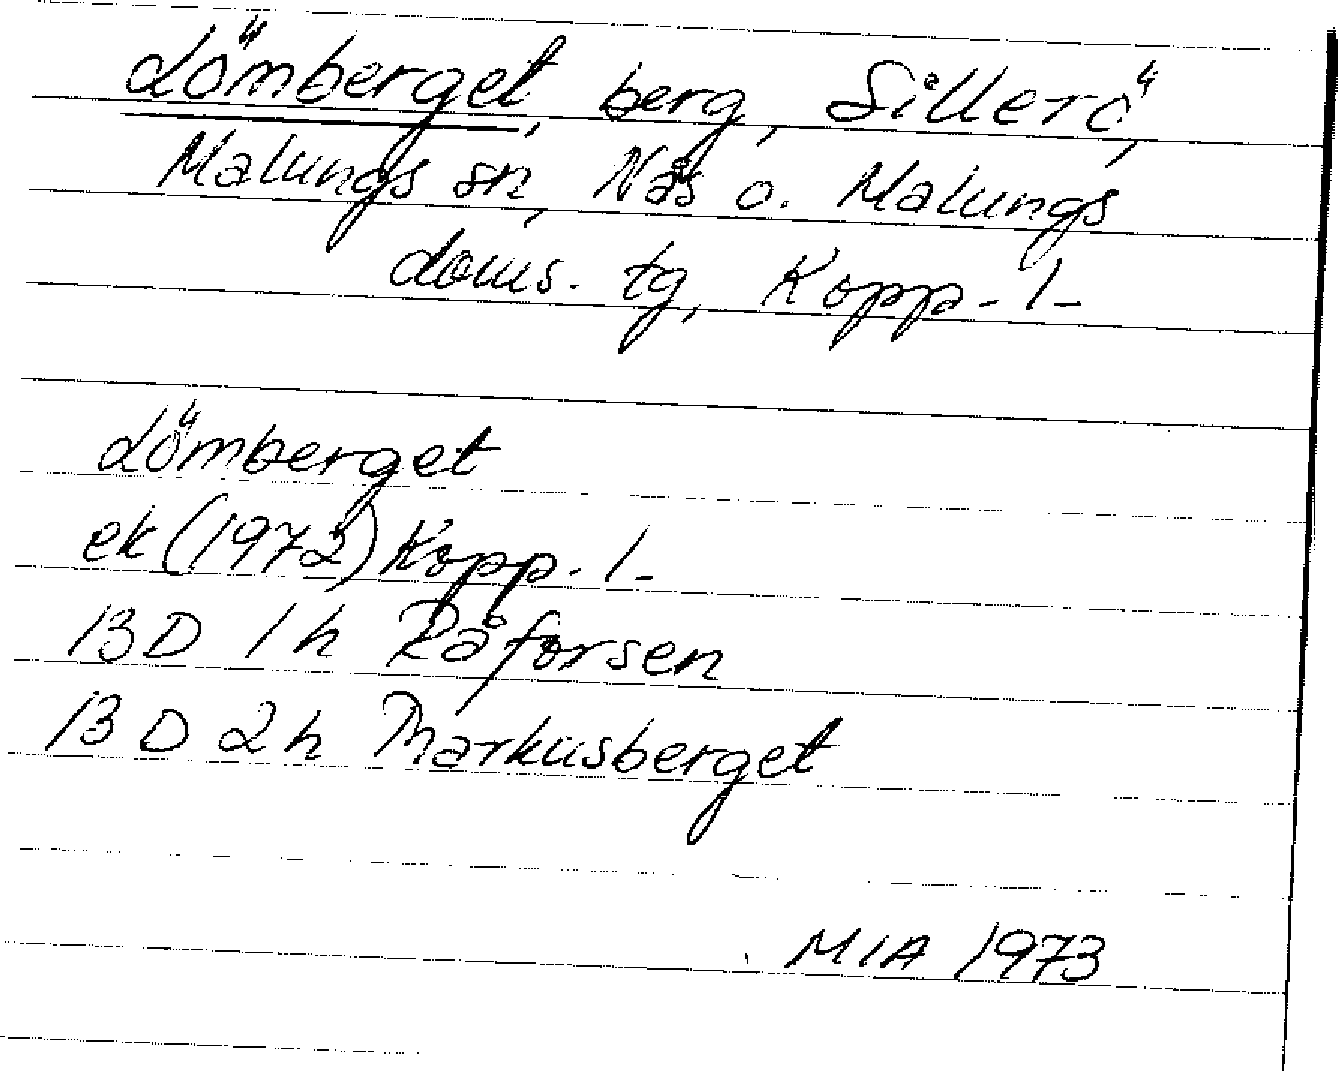 Lömberget, berg, Sillerö,
Malungs sn, Nås o. Malungs
doms. tg, Kopp. l.
Lömberget
ek (1972) Kopp. l.
13 D 1 h Råforsen
13 D 2 h Markusberget
MIA 1973